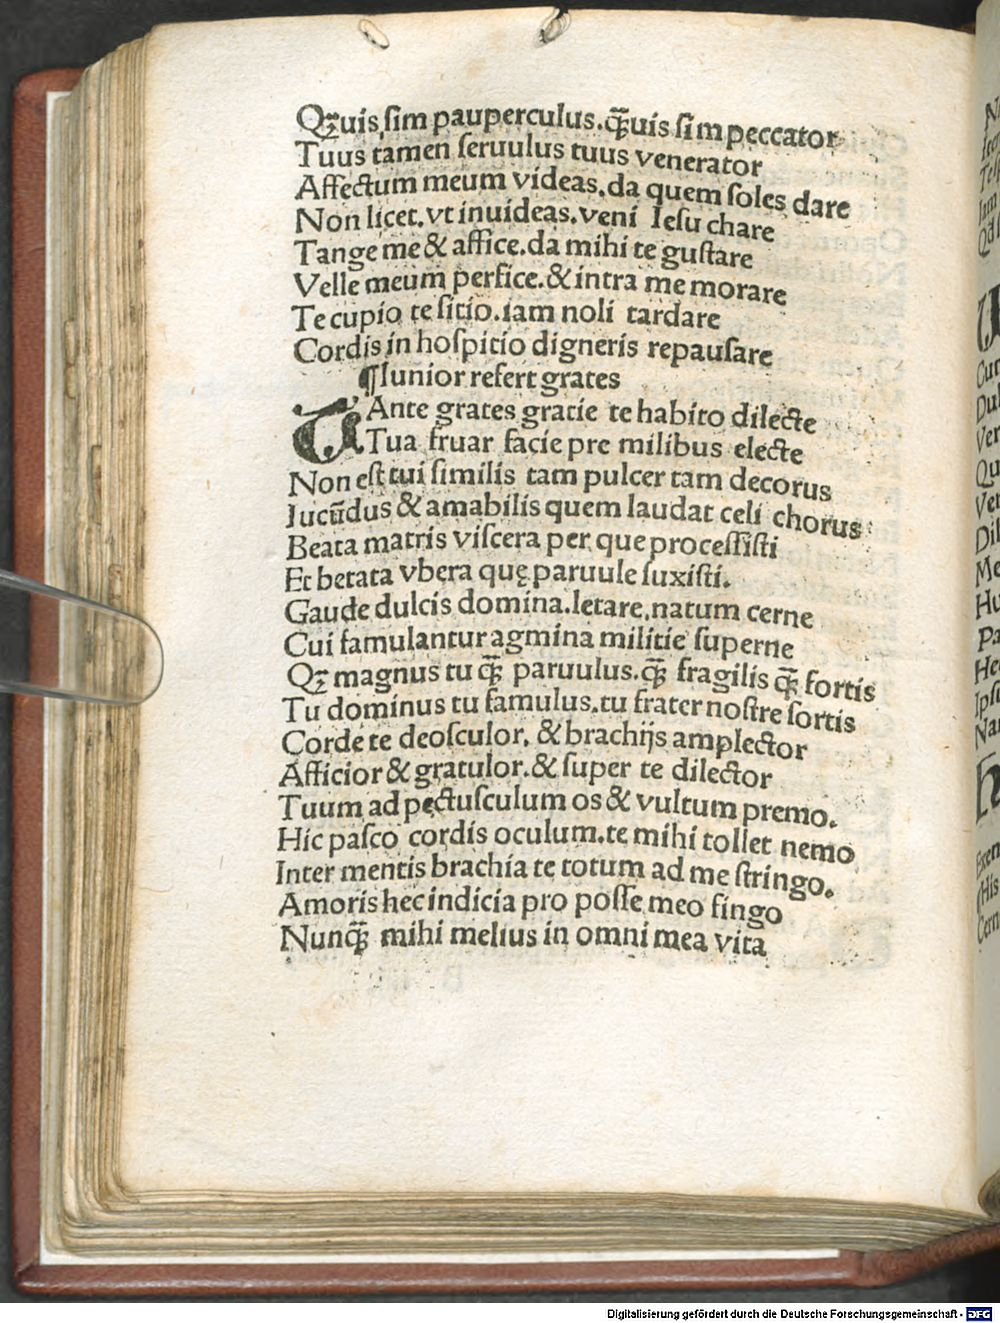 Qꝫuis ſim pauperculus.q̄ꝫuis ſim peccator
Tuus tamen ſeruulus tuus venerator
Affectum meum videas.da quem ſoles dare
Non licet.vt inuideas.veni Ieſu chare
Tange me & affice.da mihi te guſtare
Velle meum perfice.& intra me morare
Te cupio te ſitio.iam noli tardare
Cordis in hoſpitio digneris repauſare
¶Iunior refert grates
TAnte grates gratie te habito dilecte
Tua fruar facie pre milibus electe
Non eſt tui ſimilis tam pulcer tam decorus
Iucūdus & amabilis quem laudat celi chorus
Beata matris viſcera per que proceſſiſti
Et betata vbera quę paruule ſuxiſti.
Gaude dulcis domina.letare.natum cerne
Cui famulantur agmina militie ſuperne
Qꝫ magnus tu q̄ꝫ paruulus.q̄ꝫ fragilis q̄ꝫ fortis
Tu dominus tu famulus.tu frater noſtre ſortis
Corde te deoſculor. & brachijs amplector
Afficior & gratulor.& ſuper te dilector
Tuum ad pectuſculum os & vultum premo.
Hic paſco cordis oculum.te mihi tollet nemo
Inter mentis brachia te totum ad me ſtringo.
Amoris hec indicia pro poſſe meo fingo
Nunq̄ꝫ mihi melius in omni mea vita
Digitalisierung gefördert durch die Deutsche Forschungsgemeinschaft - DFG